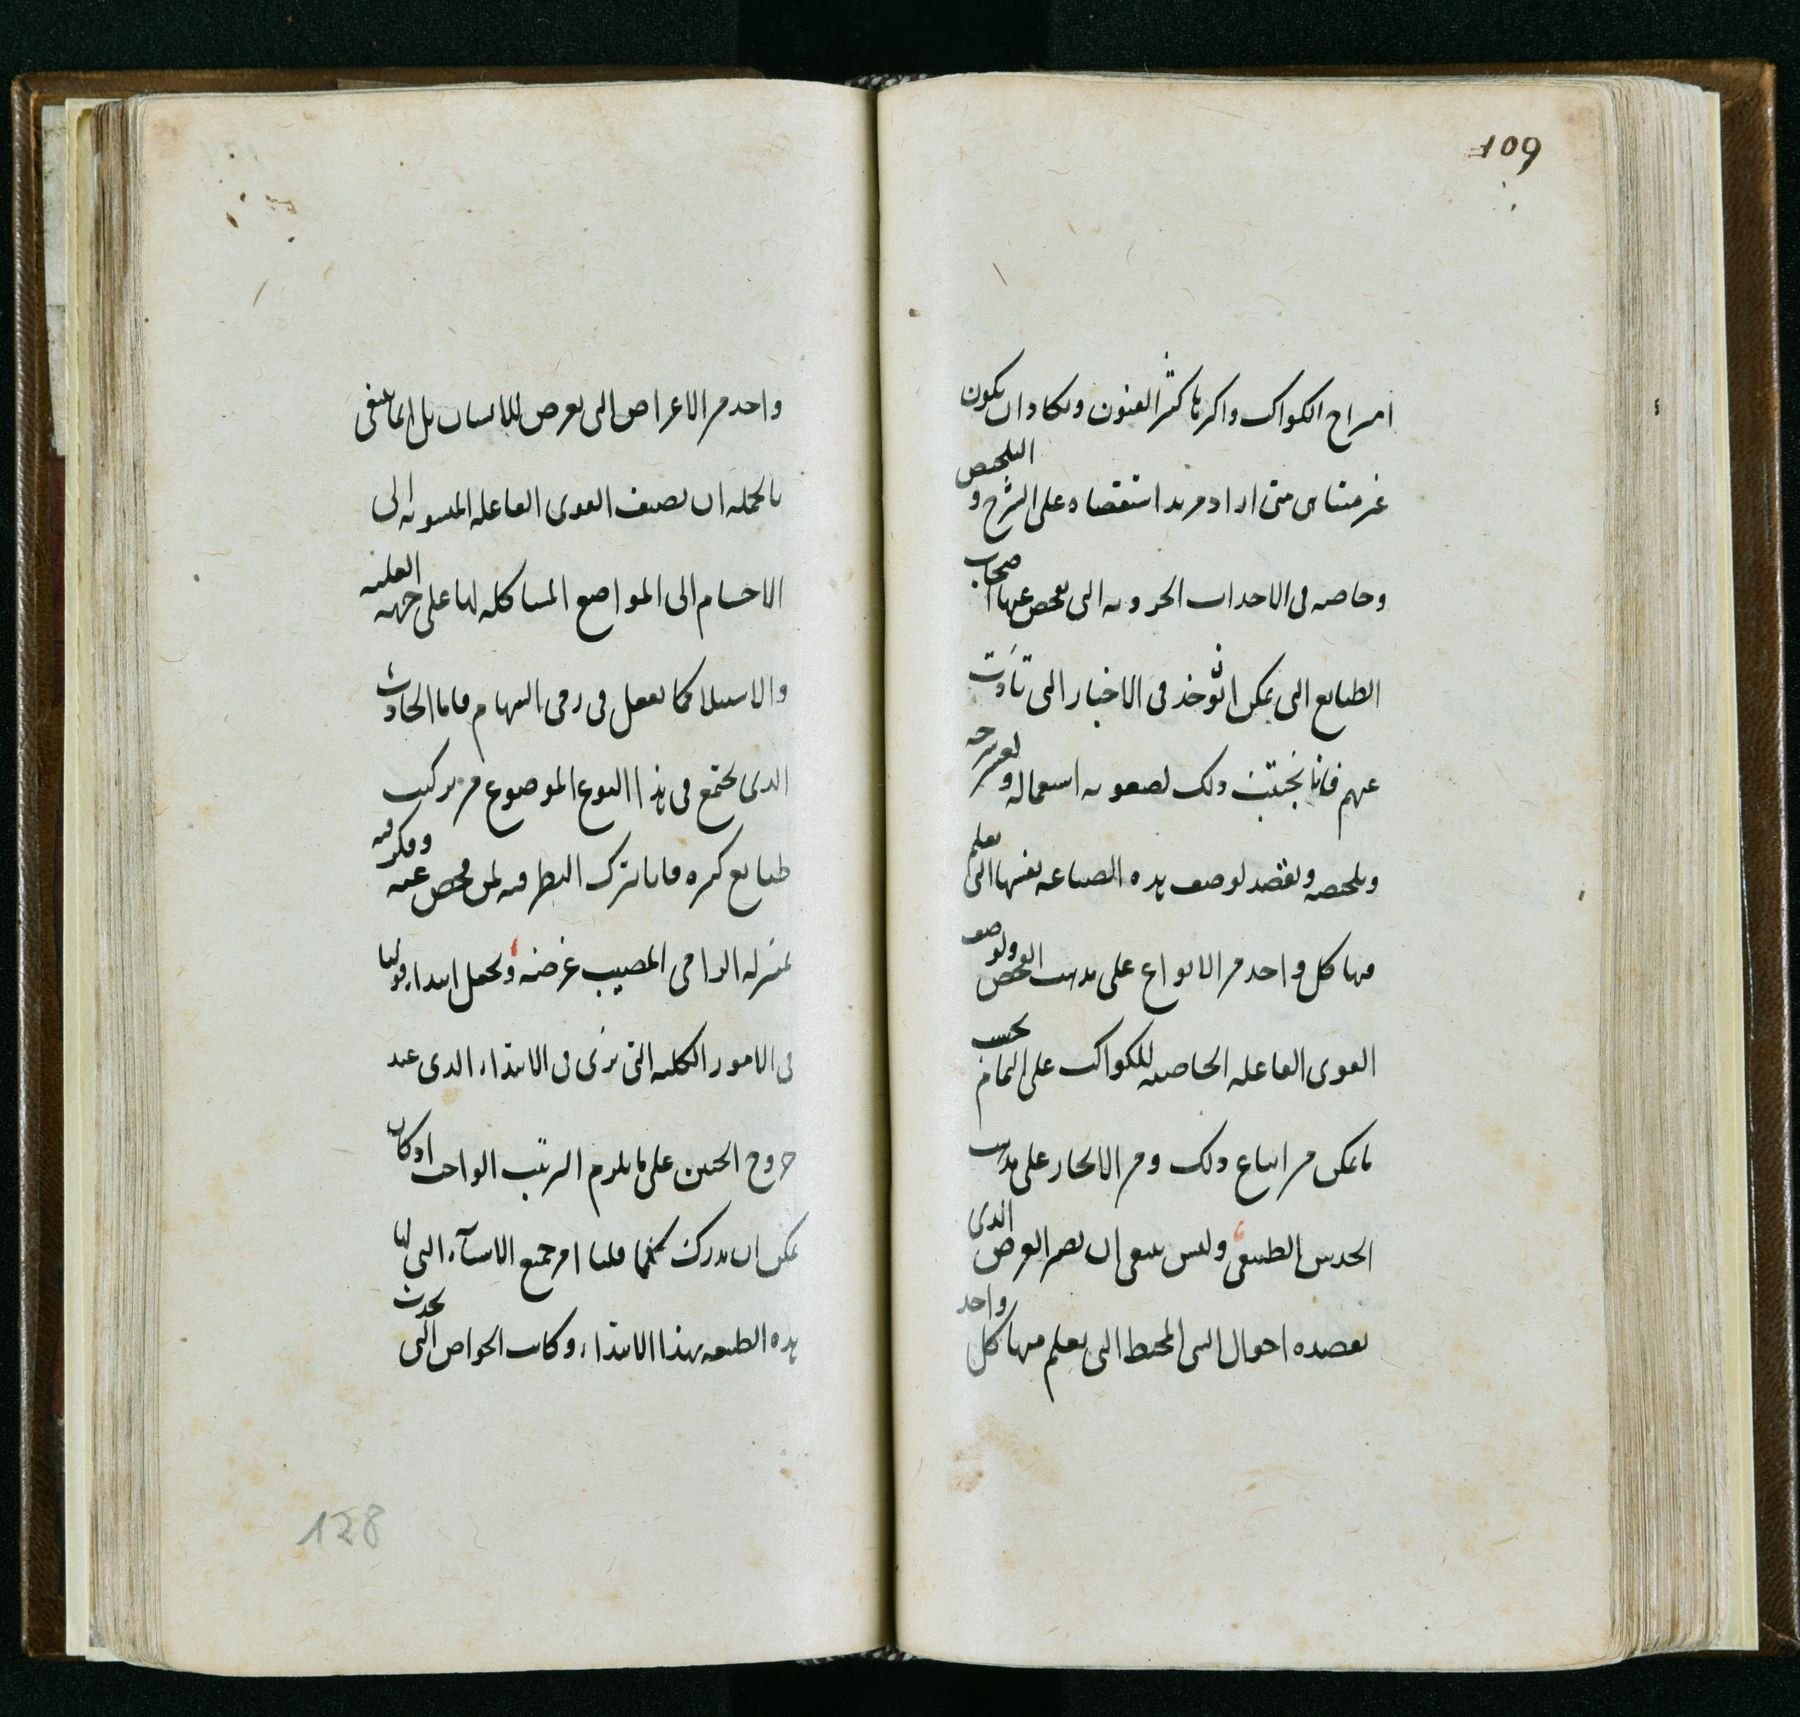 109
امزاج الكواكب واكثرها كثير الفنون ويكاد ان يكون
غير متناهى متى اراد مريد استقصاه على الشرح و التلخيص
وخاصه فى الاحداث الجزويه التى يفحص عنها اصحاب
الطبايع التى يمكن ان توخذ فى الاخبار التى تادت
عنهم فانا نجتنب ذلك لصعوبه استعماله ولعسر شرحه
وتلخيصه ونقصد لوصف هذه الصناعه نفسها التى يعلم
منها كل واحد من الانواع على مذهب الفحص ولوصف
القوى الفاعله الخاصيه للكواكب على التمام بحسب
ما يمكن من اتباع ذلك ومن الايجاز على مذهب
الحدس الطبيعى وليس ينبغى ان نصير الغرض الذى
نقصده احوال الشى المحيط التى يعلم منها كل واحد
واحد من الاعراض التى تعرض للانسان بل انما ينبغى
بالجمله ان نصيف القوى الفاعله المنسوبه الى
الاجسام الى المواضع المشاكله لها على جهه الغلبه
والاستيلا كما يفعل فى رمى السهام فاما الحادث
الذى يجتمع فى هذا النوع الموضوع من تركيب
طبايع كثيره فانا نترك النظر فيه لمن فحص عنه وفكر فيه
بمنزله الرامى المصيب غرضه ونجعل ابتداء قولنا
فى الامور الكليه التى ترى فى الابتداء الذى عند
خروج الجنين على ما يلزم الترتيب الواجب اذ كان
يمكن ان يدرك كما قلنا امر جميع الاشياء التى لها
هذه الطبيعه بهذا الابتداء وكانت الخواص التى تحدث
128